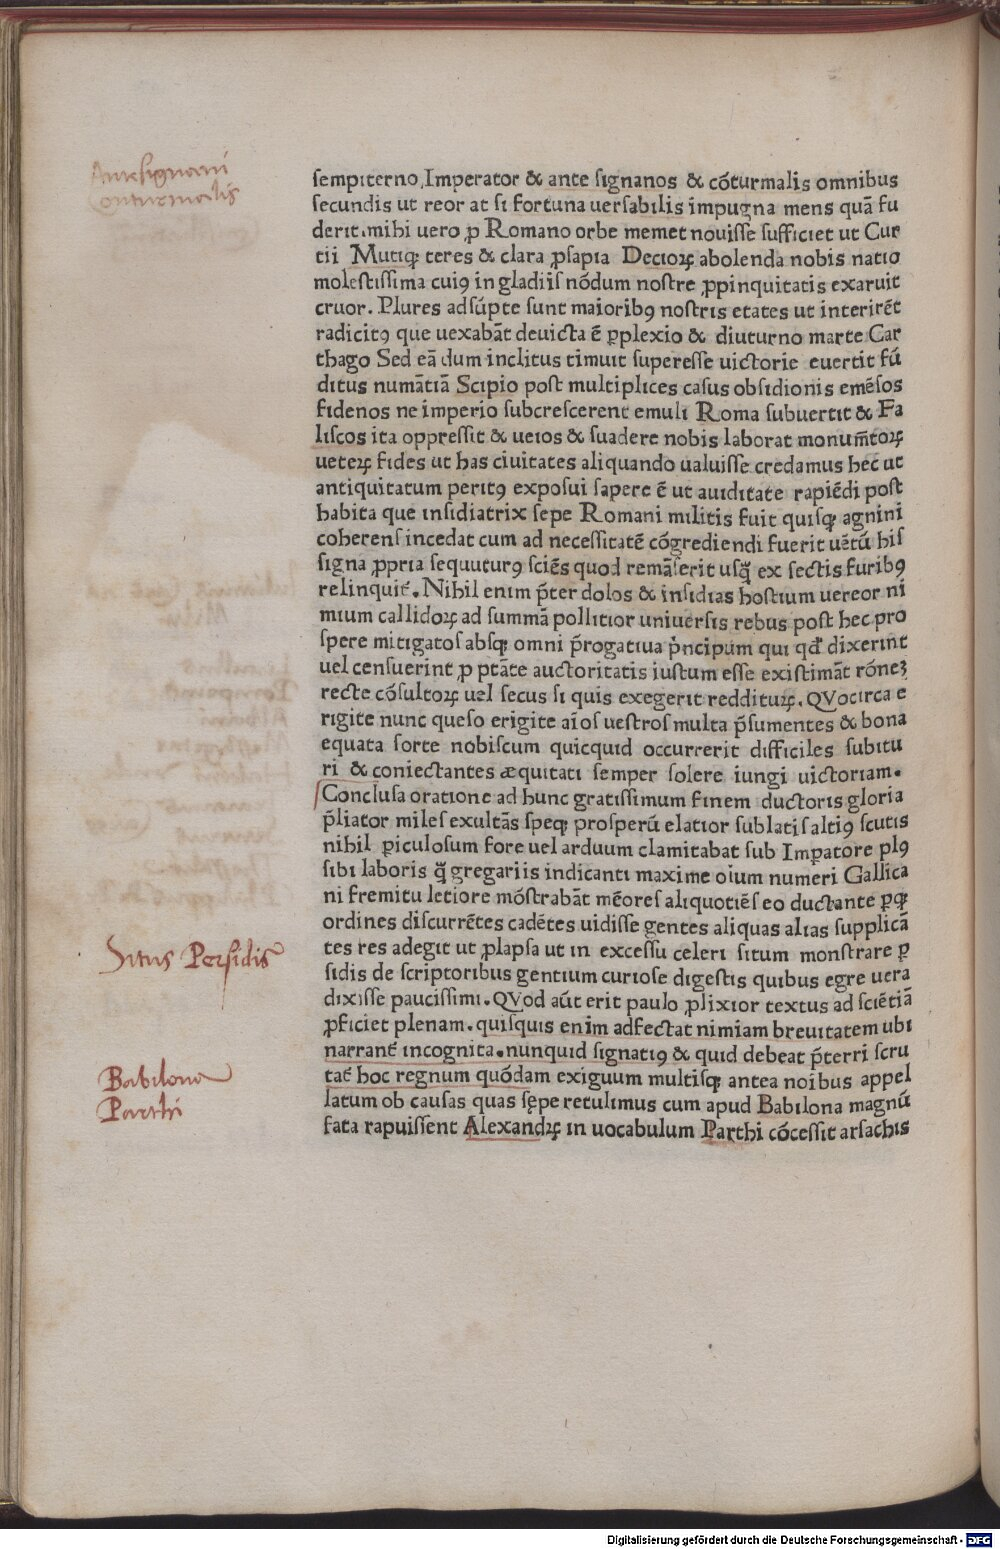 Antesignani
Conturmalis
sempiterno, Imperator & ante signanos & cōturmalis omnibus
secundis ut reor at si fortuna uersabilis impugna mens quā fu
derit. mihi uero ꝓ Romano orbe memet nouisse sufficiet ut Cur
tii Mutiqꝫ teres & clara ꝓsapia Decioꝝ abolenda nobis natio
molestissima cuiꝰ in gladiis nōdum nostre ꝓpinquitatis exaruit
cruor. Plures adsūpte sunt maioribꝰ nostris etates ut interirēt
radicitꝰ que uexabāt deuicta ē ꝑplexio & diuturno marte Car
thago Sed eā dum inclitus timuit superesse uictorie euertit fū
ditus numātiā Scipio post multiplices casus obsidionis emēsos
fidenos ne imperio subcrescerent emuli Roma subuertit & Fa
liscos ita oppressit & ueios & suadere nobis laborat monum̄toꝝ
ueteꝝ fides ut has ciuitates aliquando ualuisse credamus hec ut
antiquitatum peritꝰ exposui sapere ē ut auiditate rapiēdi post
habita que insidiatrix sepe Romani militis fuit quisqꝫ agnini
coherens incedat cum ad necessitatē cōgrediendi fuerit uētū his
signa ꝓpria sequuturꝰ sciēs quod remāserit usq̄ ex sectis furibꝰ
relinquiē. Nihil enim p̄ter dolos & insidias hostium uereor ni
mium callidoꝝ ad summā pollitior uniuersis rebus post hec pro
spere mitigatos absqꝫ omni p̄rogatiua p̄ncipum qui qđ dixerint
uel censuerint ꝓ ptāte auctoritatis iustum esse existimāt rōneꝫ
recte cōsultoꝝ uel secus si quis exegerit reddituꝝ. QVocirca e
rigite nunc queso erigite aīos uestros multa p̄sumentes & bona
equata sorte nobiscum quicquid occurrerit difficiles subitu
ri & coniectantes æquitati semper solere iungi uictoriam.
Conclusa oratione ad hunc gratissimum finem ductoris gloria
p̄liator miles exultās speqꝫ prosperū elatior sublatis altiꝰ scutis
nihil ꝑiculosum fore uel arduum clamitabat sub Imꝑatore plꝰ
sibi laboris q̄ gregariis indicanti maxime oīum numeri Gallica
ni fremitu letiore mōstrabāt mēores aliquotiēs eo ductante ꝑqꝫ
ordines discurrētes cadētes uidisse gentes aliquas alias supplicā
tes res adegit ut ꝓlapsa ut in excessu celeri situm monstrare ꝑ
sidis de scriptoribus gentium curiose digestis quibus egre uera
dixisse paucissimi. QVod aūt erit paulo ꝓlixior textus ad sciētiā
ꝓficiet plenam. quisquis enim adfectat nimiam breuitatem ubi
narranē incognita. nunquid signatiꝰ & quid debeat p̄terri scru
taē hoc regnum quōdam exiguum multisqꝫ antea noībus appel
latum ob causas quas sępe retulimus cum apud Babilona magnū
fata rapuissent Alexandꝝ in uocabulum Parthi cōcessit arsachis
Situs Persidis
Babilona
Parthi
Digitalisierung gefördert durch die Deutsche Forschungsgemeinschaft - DFG